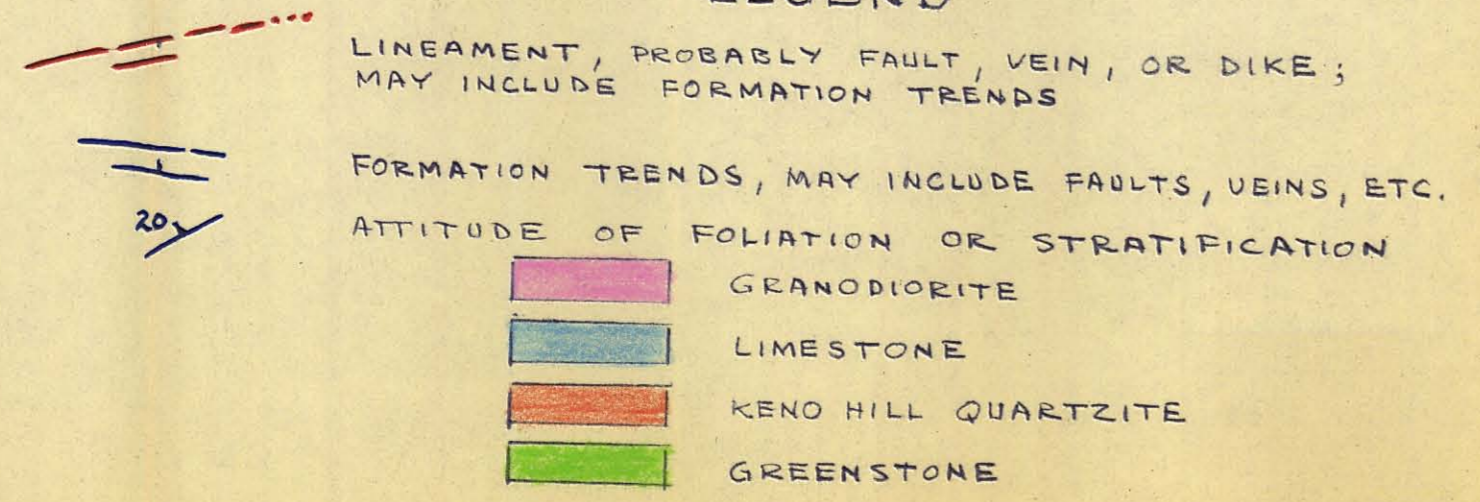 LEGEND
LINEAMENT, PROBABLY FAULT, VEIN, OR DIKE;
MAY INCLUDE FORMATION TRENDS
FORMATION TRENDS, MAY INCLUDE FAULTS, VEINS, ETC.
20
ATTITUDE OF FOLIATION OR STRATIFICATION
GRANODIORITE
LIMESTONE
KENO HILL QUARTZITE
GREENSTONE